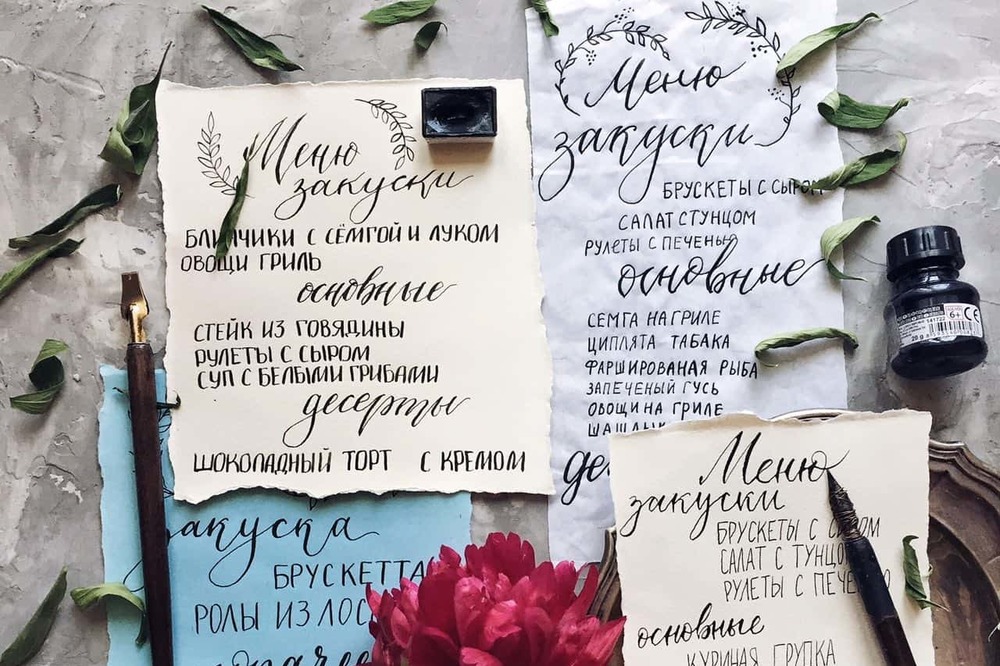 Меню
закуски
БЛИНЧИКИ С СЁМГОЙ И ЛУКОМ
ОВОЩИ ГРИЛЬ
основные
СТЕЙК ИЗ ГОВЯДИНЫ
РУЛЕТЫ С СЫРОМ
СУП С БЕЛЫМИ ГРИБАМИ
десерты
ШОКОЛАДНЫЙ ТОРТ С КРЕМОМ
Меню
закуски
БРУСКЕТЫ С СЫРОМ
САЛАТ С ТУНЦОМ
РУЛЕТЫ С ПЕЧЕНЬЮ
основные
СЕМГА НА ГРИЛЕ
ЦИПЛЯТА ТАБАКА
ФАРШИРОВАНАЯ РЫБА
ЗАПЕЧЕНЫЙ ГУСЬ
ОВОЩИ НА ГРИЛЕ
закуска
БРУСКЕТТА
РОЛЫ ИЗ
Меню
закуски
БРУСКЕТЫ С СЫРОМ
САЛАТ С ТУНЦО
РУЛЕТЫ С ПЕЧЕ
основные
КУРИНАЯ ГРУПКА